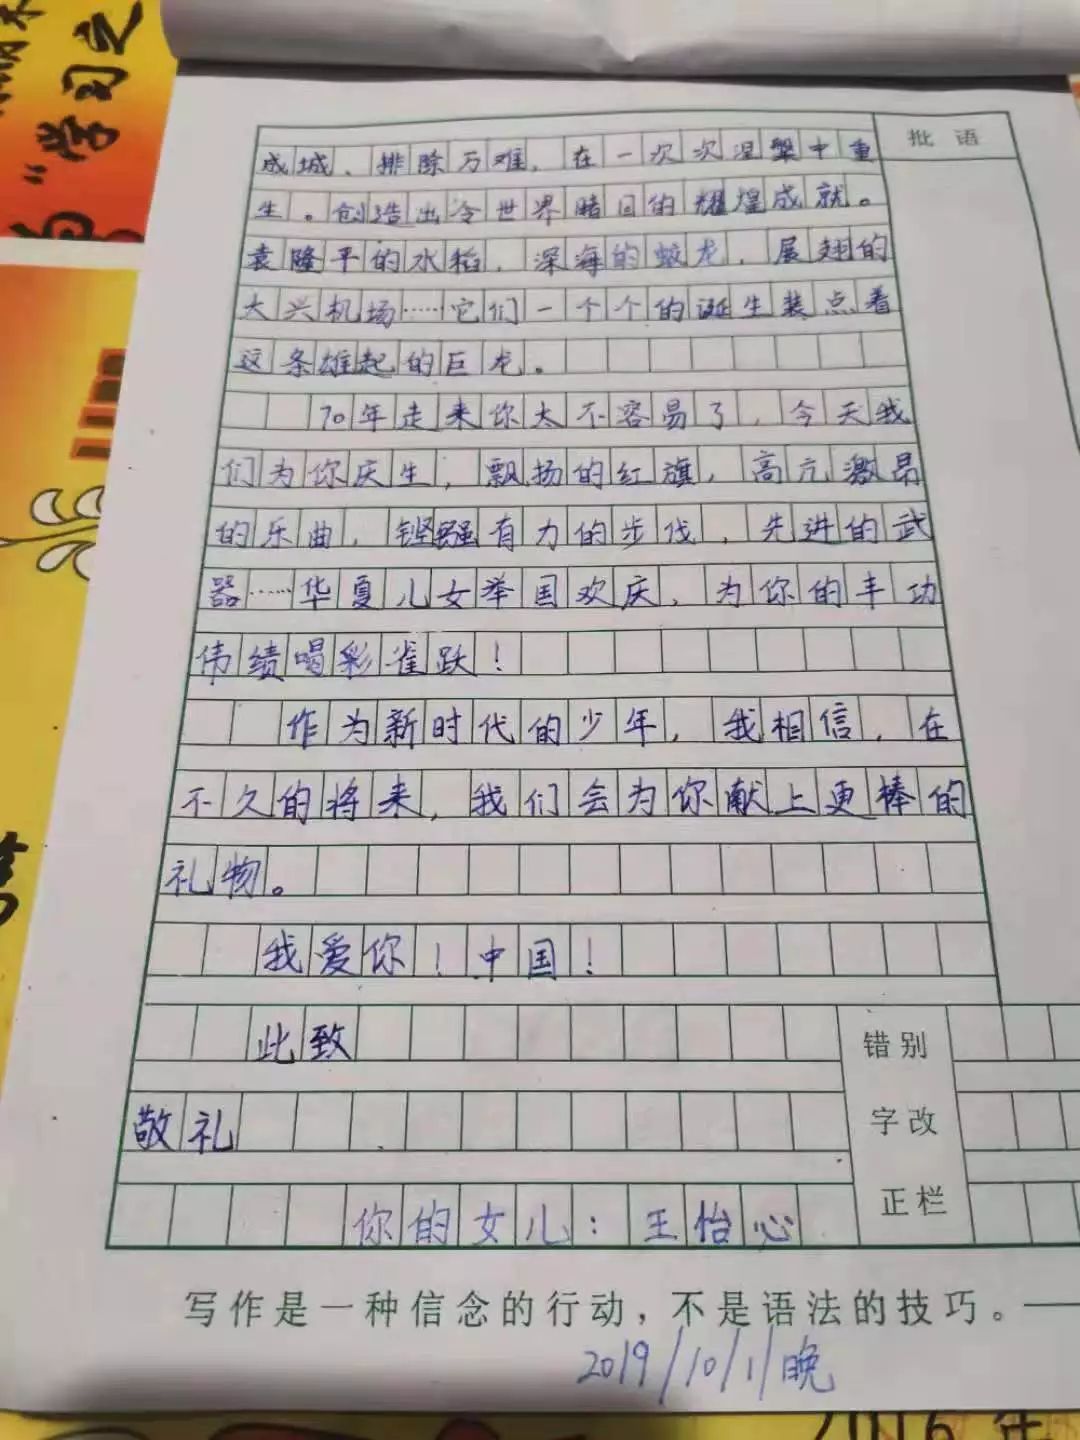 批语
成城、排除万难，在一次次涅槃中重
生。创造出令世界睹目的耀煌成就。
袁隆平的水稻，深海的蛟龙，展翅的
大兴机场……它们一个个的诞生装点着
这条雄起的巨龙。
70年走来你太不容易了，今天我
们为你庆生，飘扬的红旗，高亢激昂
的乐曲，铿锵有力的步伐，先进的武
器……华夏儿女举国欢庆，为你的丰功
伟绩喝彩雀跃！
作为新时代的少年，我相信，在
不久的将来，我们会为你献上更棒的
礼物。
我爱你！中国！
此致
敬礼
你的女儿：王怡心
错别
字改
正栏
写作是一种信念的行动，不是语法的技巧。—
2019/10/1/晚
"学习之
2016年